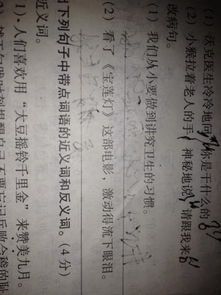 (1) 沃克医生冷冷地问 你是干什么的
(2) 小猴拉着老人的手 神秘地说 请跟我来
改病句。
(1) 我们从小要做到讲究卫生的习惯。
(2) 看了《宝莲灯》这部电影，激动得流下眼泪。
下列句子中带点词语的近义词和反义词。(4分)
近义词。
(1)·人们喜欢用“大豆摇铃千里金”来赞美九月。